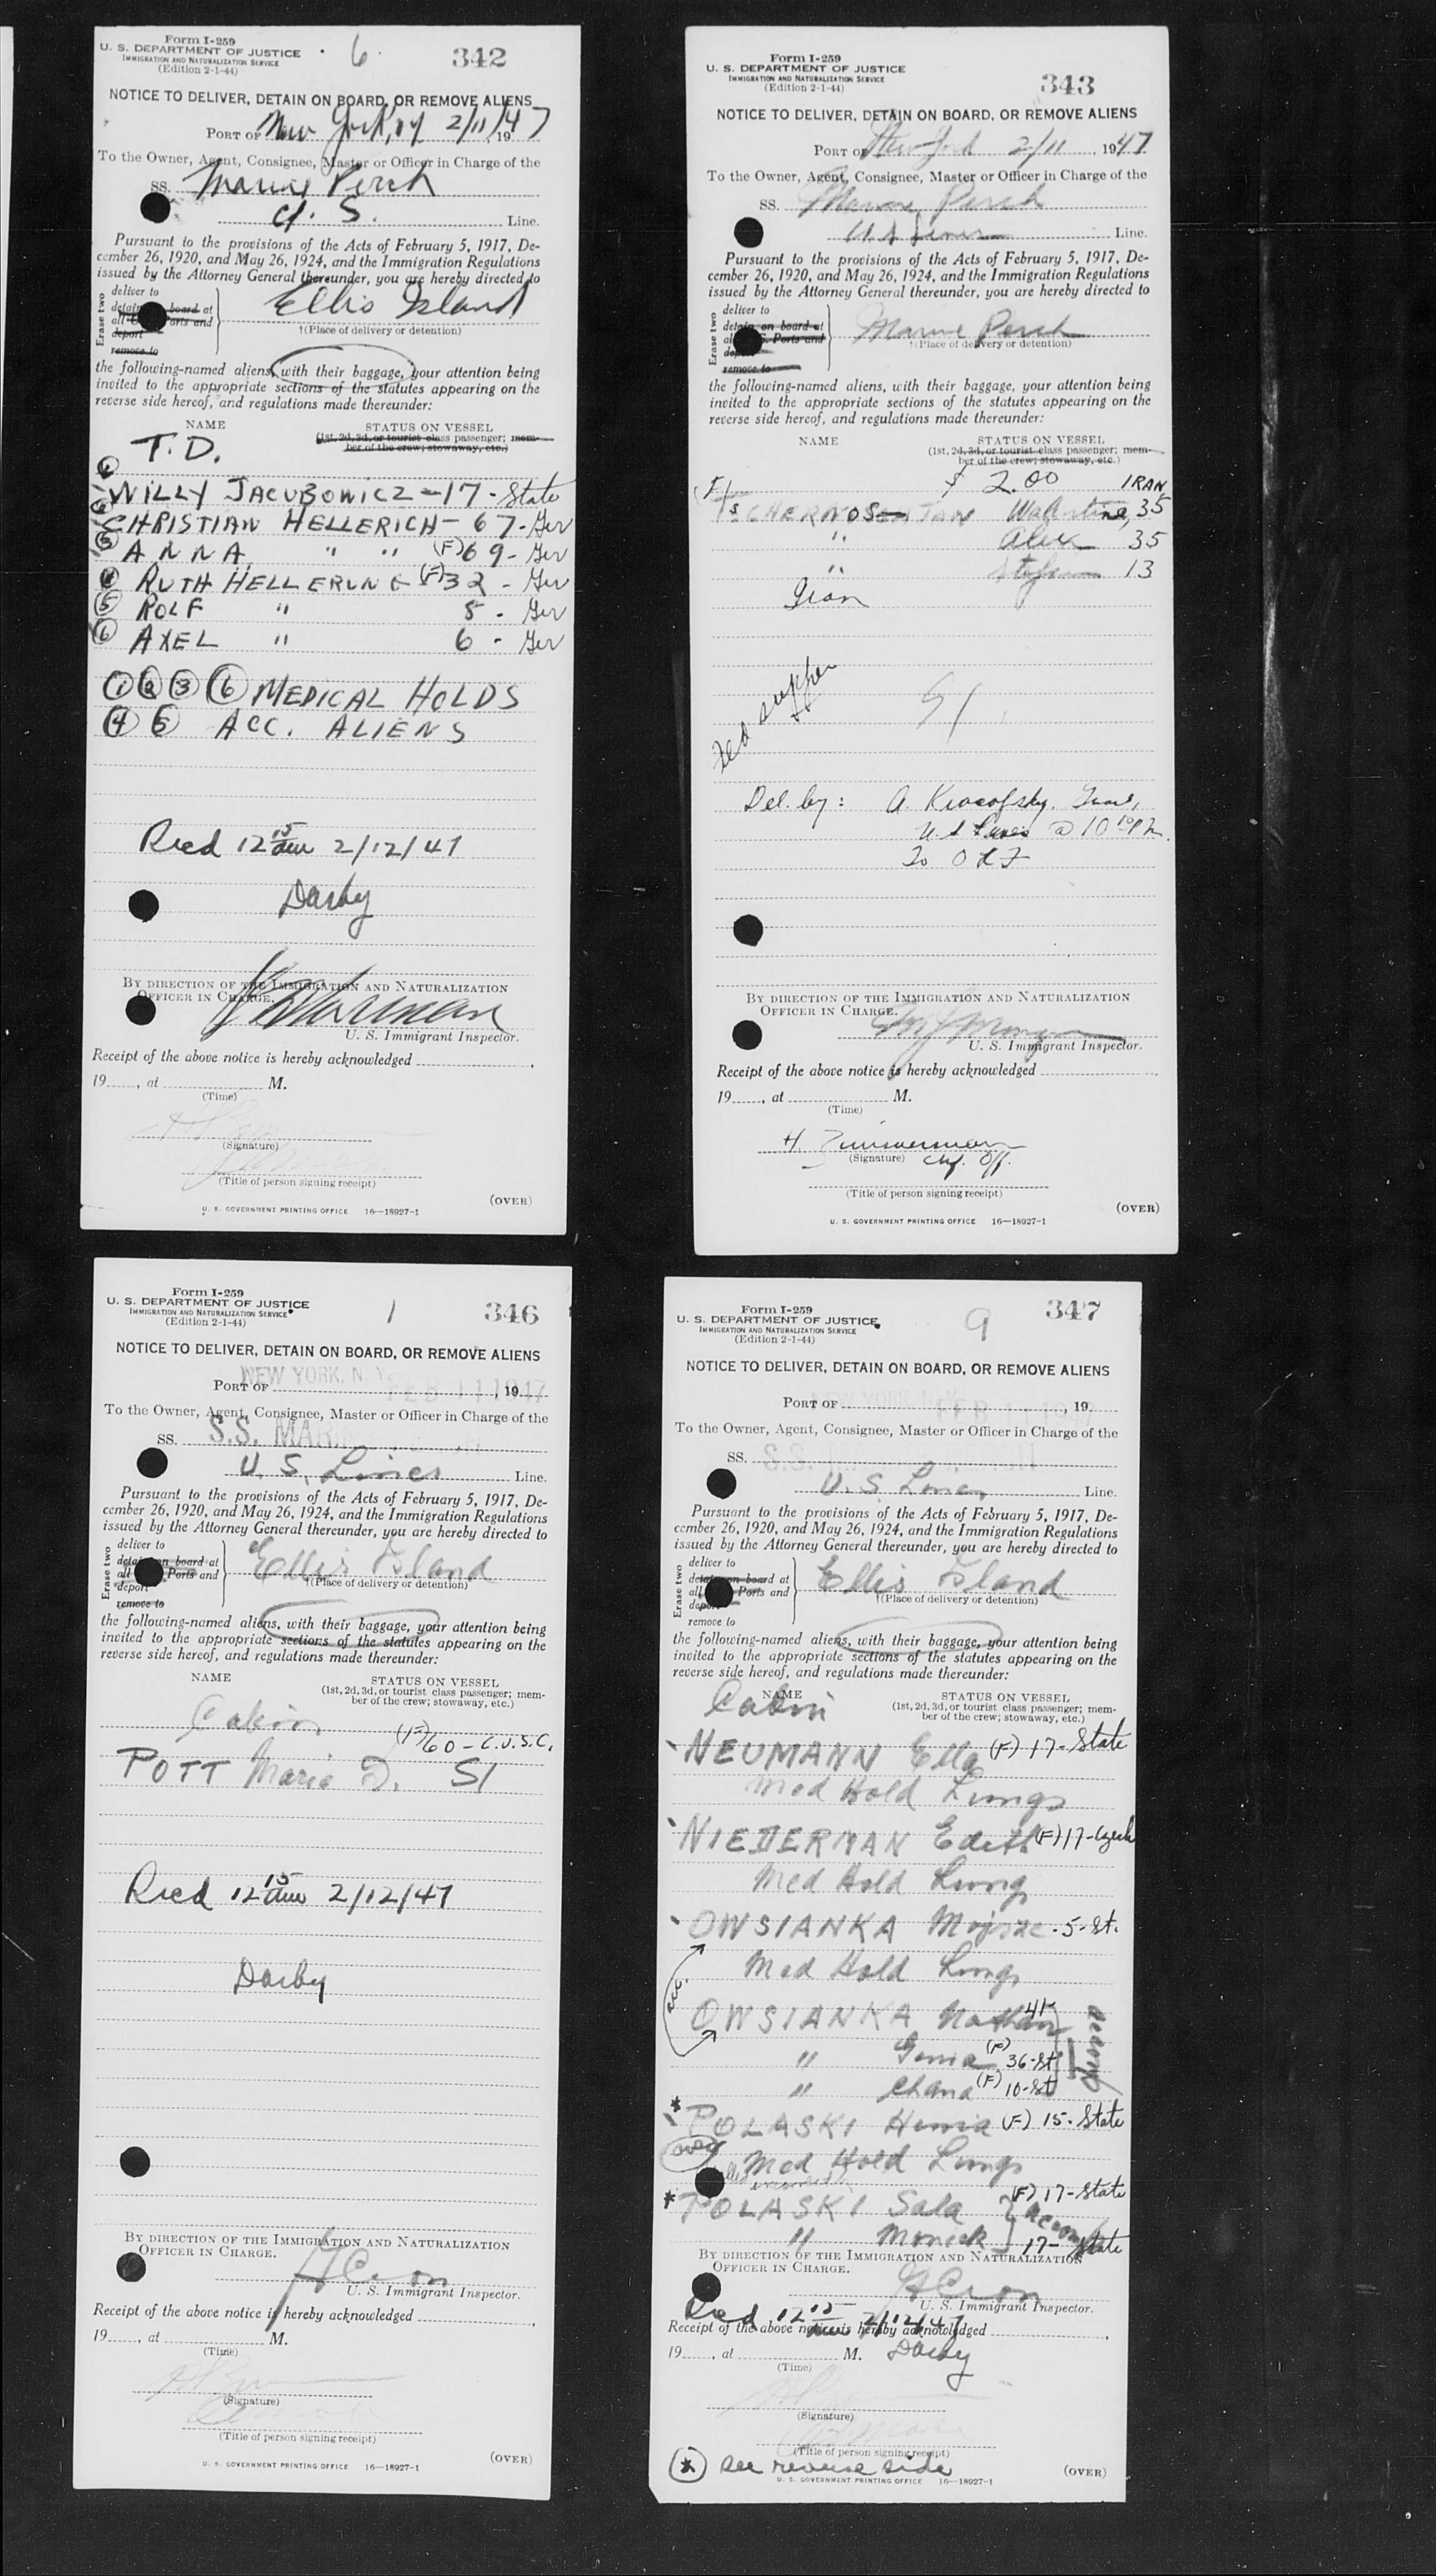 Form I-259
U. S. DEPARTMENT OF JUSTICE
IMMIGRATION AND NATURALIZATION SERVICE
(Edition 2-1-44)
6
342
NOTICE TO DELIVER, DETAIN ON BOARD, OR REMOVE ALIENS
PORT OF New York, NY 2/11/1947
To the Owner, Agent, Consignee, Master or Officer in Charge of the
SS. Marine Perch
U. S. Line.
Pursuant to the provisions of the Acts of February 5, 1917, De-
cember 26, 1920, and May 26, 1924, and the Immigration Regulations
issued by the Attorney General thereunder, you are hereby directed to
Erase two
deliver to
board at
all orts and
deport
remove to
Ellis Island
†(Place of delivery or detention)
the following-named aliens, with their baggage, your attention being
invited to the appropriate sections of the statutes appearing on the
reverse side hereof, and regulations made thereunder:
NAME STATUS ON VESSEL
(1st, 2d, 3d, or tourist class passenger; mem-
ber of the crew; stowaway, etc.)
T.D.
① WILLY JACUBOWICZ - 17 - State
② CHRISTIAN HELLERICH - 67 - Ger
③ ANNA " " (F) 69 - Ger
④ RUTH HELLERUNG (F) 32 - Ger
⑤ ROLF " 8 - Ger
⑥ AXEL " 6 - Ger
① ② ③ ⑥ MEDICAL HOLDS
④ ⑤ ACC. ALIENS
Recd 12 15 am 2/12/47
Darby
BY DIRECTION OF THE IMMIGRATION AND NATURALIZATION
OFFICER IN CHARGE.
U. S. Immigrant Inspector.
Receipt of the above notice is hereby acknowledged
19 , at M.
(Time)
(Signature)
(Title of person signing receipt)
(OVER)
U. S. GOVERNMENT PRINTING OFFICE 16—18927-1
Form I-259
U. S. DEPARTMENT OF JUSTICE
IMMIGRATION AND NATURALIZATION SERVICE
(Edition 2-1-44)
343
NOTICE TO DELIVER, DETAIN ON BOARD, OR REMOVE ALIENS
PORT OF New York 2/11, 1947
To the Owner, Agent, Consignee, Master or Officer in Charge of the
SS. Marine Perch
U.S. Lines Line.
Pursuant to the provisions of the Acts of February 5, 1917, De-
cember 26, 1920, and May 26, 1924, and the Immigration Regulations
issued by the Attorney General thereunder, you are hereby directed to
Erase two
deliver to
detain on board at
al S. Ports and
de
remove to
Marine Perch
†(Place of delivery or detention)
the following-named aliens, with their baggage, your attention being
invited to the appropriate sections of the statutes appearing on the
reverse side hereof, and regulations made thereunder:
NAME STATUS ON VESSEL
(1st, 2d, 3d, or tourist class passenger; mem-
ber of the crew; stowaway, etc.)
(F) $ 2.00 IRAN
35
" Alex 35
" 13
Iran
Fed supper
Del. by: A.
U S Lines @ 10 10 PM.
To
BY DIRECTION OF THE IMMIGRATION AND NATURALIZATION
OFFICER IN CHARGE.
U. S. Immigrant Inspector.
Receipt of the above notice is hereby acknowledged
19 , at M.
(Time)
H. Zimmerman
(Signature) Off.
(Title of person signing receipt)
(OVER)
U. S. GOVERNMENT PRINTING OFFICE 16—18927-1
Form I-259
U. S. DEPARTMENT OF JUSTICE
IMMIGRATION AND NATURALIZATION SERVICE
(Edition 2-1-44)
1
346
NOTICE TO DELIVER, DETAIN ON BOARD, OR REMOVE ALIENS
NEW YORK, N. Y. FEB 11 1947
PORT OF , 19
To the Owner, Agent, Consignee, Master or Officer in Charge of the
SS. S.S. MAR
U. S. Lines Line.
Pursuant to the provisions of the Acts of February 5, 1917, De-
cember 26, 1920, and May 26, 1924, and the Immigration Regulations
issued by the Attorney General thereunder, you are hereby directed to
Erase two
deliver to
detain on board at
all Ports and
deport
remove to
Ellis Island
†(Place of delivery or detention)
the following-named aliens, with their baggage, your attention being
invited to the appropriate sections of the statutes appearing on the
reverse side hereof, and regulations made thereunder:
NAME STATUS ON VESSEL
(1st, 2d, 3d, or tourist class passenger; mem-
ber of the crew; stowaway, etc.)
Cabin
(F) 60 - C.U.S.C.
POTT Maria D. SI
Recd 12 15 am 2/12/47
Darby
BY DIRECTION OF THE IMMIGRATION AND NATURALIZATION
OFFICER IN CHARGE.
U. S. Immigrant Inspector.
Receipt of the above notice is hereby acknowledged
19 , at M.
(Time)
(Signature)
(Title of person signing receipt)
(OVER)
U. S. GOVERNMENT PRINTING OFFICE 16—18927-1
Form I-259
U. S. DEPARTMENT OF JUSTICE
IMMIGRATION AND NATURALIZATION SERVICE
(Edition 2-1-44)
9
347
NOTICE TO DELIVER, DETAIN ON BOARD, OR REMOVE ALIENS
NEW YORK, N. Y. FEB 11 1947
PORT OF , 19
To the Owner, Agent, Consignee, Master or Officer in Charge of the
SS. S.S.
U. S. Lines Line.
Pursuant to the provisions of the Acts of February 5, 1917, De-
cember 26, 1920, and May 26, 1924, and the Immigration Regulations
issued by the Attorney General thereunder, you are hereby directed to
Erase two
deliver to
detain on board at
all Ports and
depo
remove to
Ellis Island
†(Place of delivery or detention)
the following-named aliens, with their baggage, your attention being
invited to the appropriate sections of the statutes appearing on the
reverse side hereof, and regulations made thereunder:
NAME STATUS ON VESSEL
(1st, 2d, 3d, or tourist class passenger; mem-
ber of the crew; stowaway, etc.)
Cabin
NEUMANN Ella (F) 17 - State
Med Hold Lungs
NIEDERMAN Edith (F) 17 - Czech
Med Hold Lungs
OWSIANKA - 5 - St.
Med Hold Lungs
acc.
OWSIANKA Nathan 41
" Genia (F) 36 - St
" Chana (F) 10 - St
accomp
* POLASKI Henia (F) 15 - State
over
Med Hold Lungs
* POLASKI Sala (F) 17 - State
" Moniek 17 - State
accomp
BY DIRECTION OF THE IMMIGRATION AND NATURALIZATION
OFFICER IN CHARGE.
U. S. Immigrant Inspector.
Recd 12 15 am 2/12/47
Receipt of the above notice is hereby acknowledged
19 , at M. Darby
(Time)
(Signature)
(Title of person signing receipt)
(*) see reverse side (OVER)
U. S. GOVERNMENT PRINTING OFFICE 16—18927-1